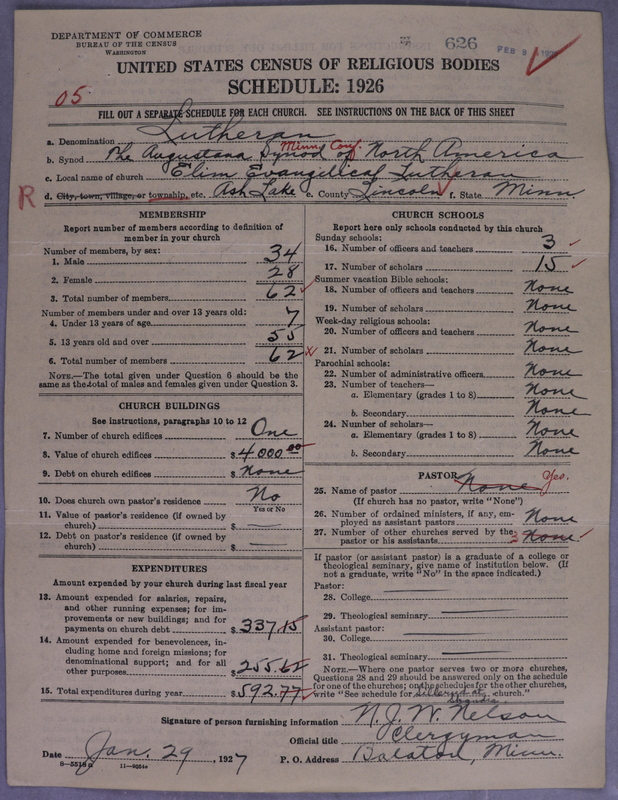 DEPARTMENT OF COMMERCE
BUREAU OF THE CENSUS
WASHINGTON
626
FEB 3
UNITED STATES CENSUS OF RELIGIOUS BODIES
SCHEDULE: 1926
05
FILL OUT A SEPARATE SCHEDULE FOR EACH CHURCH. SEE INSTRUCTIONS ON THE BACK OF THIS SHEET
a. Denomination Lutheran
Minn Conf.
b. Synod The Augustana Synod of North America
c. Local name of church Elim Evangelical Lutheran
R d. City, town, village, or township, etc. Ash Lake e. County Lincoln f. State Minn.
MEMBERSHIP
Report number of members according to definition of
member in your church
Number of members, by sex:
1. Male 34
2. Female 28
3. Total number of members 62
Number of members under and over 13 years old:
4. Under 13 years of age 7
5. 13 years old and over 55
6. Total number of members 62
NOTE.—The total given under Question 6 should be the
same as the total of males and females given under Question 3.
CHURCH BUILDINGS
See instructions, paragraphs 10 to 12
7. Number of church edifices One
8. Value of church edifices $4000.00
9. Debt on church edifices $None
10. Does church own pastor's residence No
Yes or No
11. Value of pastor's residence (if owned by
church) $
12. Debt on pastor's residence (if owned by
church) $
EXPENDITURES
Amount expended by your church during last fiscal year
13. Amount expended for salaries, repairs,
and other running expenses; for im-
provements or new buildings; and for
payments on church debt $337.15
14. Amount expended for benevolences, in-
cluding home and foreign missions; for
denominational support; and for all
other purposes $255.62
15. Total expenditures during year $592.77
CHURCH SCHOOLS
Report here only schools conducted by this church
Sunday schools:
16. Number of officers and teachers 3
17. Number of scholars 15
Summer vacation Bible schools:
18. Number of officers and teachers None
19. Number of scholars None
Week-day religious schools:
20. Number of officers and teachers None
21. Number of scholars None
Parochial schools:
22. Number of administrative officers None
23. Number of teachers—
a. Elementary (grades 1 to 8) None
b. Secondary None
24. Number of scholars—
a. Elementary (grades 1 to 8) None
b. Secondary None
PASTOR
25. Name of pastor None Yes.
(If church has no pastor, write "None")
26. Number of ordained ministers, if any, em-
ployed as assistant pastors None
27. Number of other churches served by the
pastor or his assistants 3 None
If pastor (or assistant pastor) is a graduate of a college or
theological seminary, give name of institution below. (If
not a graduate, write "No" in the space indicated.)
Pastor:
28. College
29. Theological seminary
Assistant pastor:
30. College
31. Theological seminary
NOTE.—Where one pastor serves two or more churches,
Questions 28 and 29 should be answered only on the schedule
for one of the churches; on the schedules for the other churches,
write "See schedule for church."
Signature of person furnishing information N. J. W. Nelson
Official title Clergyman
Date Jan. 29, 1927 P. O. Address Balaton, Minn.
8—5518a 11—9054a